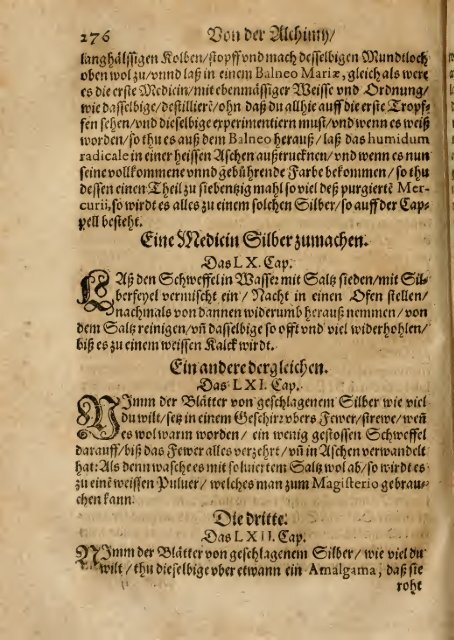 276 Von der Alchimy/
langhälssigen Kolben/stopff vnd mach desselbigen Mundtloch
oben wol zu/vnnd laß in einem Balneo Mariæ, gleich als were
es die erste Medicin/mit ebenmässiger Weisse vnd Ordnung/
wie dasselbige/destilliert/ohn daß du allhie auff die erste Tropf-
fen sehen/vnd dieselbige experimentiern must/vnd wenn es weiß
worden/so thu es auß dem Balneo herauß/laß das humidum
radicale in einer heissen Aschen außtrucknen/vnd wenn es nun
seine vollkommene vnnd gebührende Farbe bekommen/so thu
dessen einen Theil zu siebenzig mahl so viel deß purgierte Mer-
curii, so wirdt es alles zu einem solchen Silber/so auff der Cap-
pell besteht.
Eine Medicin Silber zumachen.
Das LX. Cap.
LAß den Schweffel in Wasser mit Saltz sieden/mit Sil-
berfeyel vermischt ein/Nacht in einen Ofen stellen/
nachmals von dannen widerumb herauß nemmen/von
dem Saltz reinigen/vñ dasselbige so offt vnd viel widerhohlen/
biß es zu einem weissen Kalck wirdt.
Ein andere dergleichen.
Das LXI. Cap.
NImm der Blätter von geschlagenem Silber wie viel
du wilt/setz in einem Geschirr vbers Fewer/strewe/weñ
es wol warm worden/ein wenig gestossen Schweffel
darauff/biß das Fewer alles verzehrt/vñ in Aschen verwandelt
hat: Als denn wasche es mit soluiertem Saltz wol ab/so wirdt es
zu eine weissen Puluer/welches man zum Magisterio gebrau-
chen kann.
Die dritte.
Das LXII. Cap.
NImm der Blätter von geschlagenem Silber/wie viel du
wilt/thu dieselbige vber etwann ein Amalgama, daß sie
roht